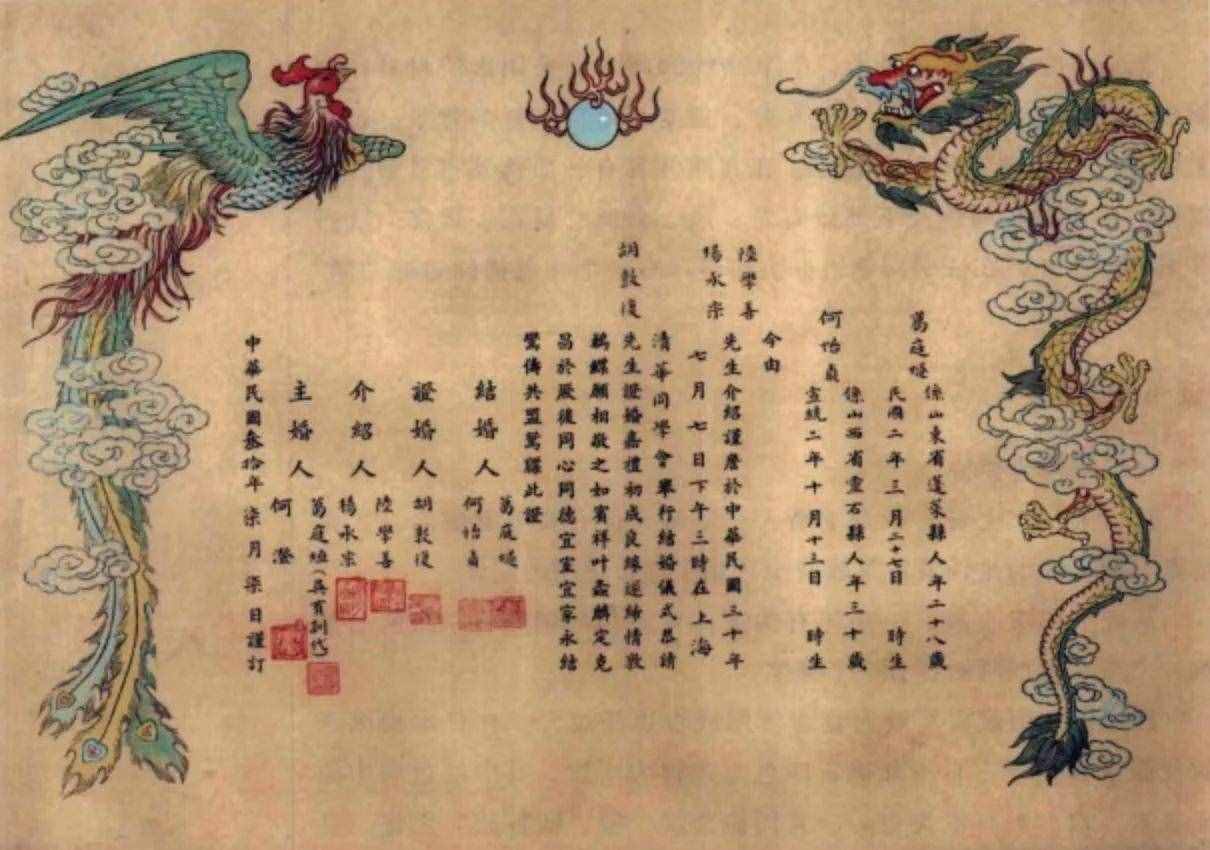 葛庭燧 係山東省蓬萊縣人年二十八歲
民國二年三月二十七日 時生
何怡貞 係山西省靈石縣人年三十歲
宣統二年十月十三日 時生
今由
陸學善
楊永宗
先生介紹謹詹於中華民國三十年
七月七日下午三時在上海
清華同學會舉行結婚儀式恭請
胡敦復
先生證婚嘉禮初成良緣遂締情敦
鶼鰈願相敬之如賓祥叶螽麟定克
昌於厥後同心同德宜室宜家永結
鸞儔共盟鴛牒此證
結婚人 葛庭燧
何怡貞
證婚人 胡敦復
介紹人 陸學善
楊永宗
主婚人 葛庭烜(吳有訓代)
何澄
中華民國叁拾年柒月柒日謹訂